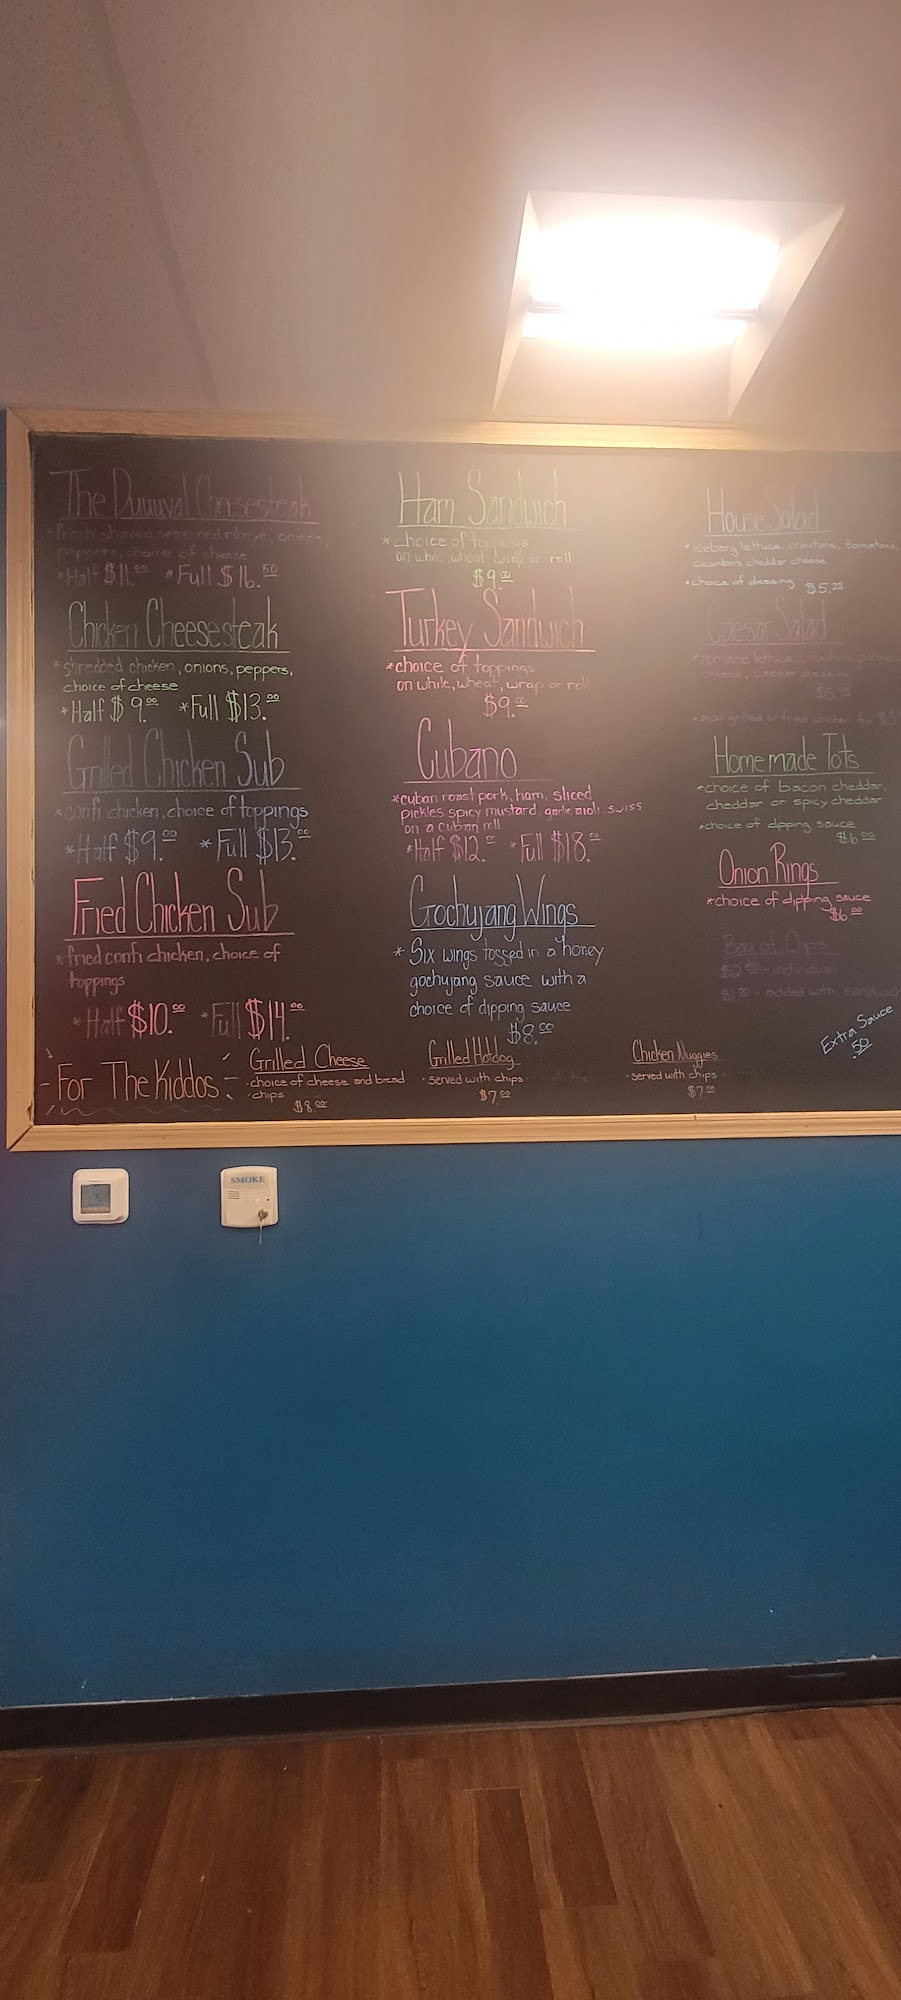 The Duuuval Cheesesteak
*fresh shaved seasoned ribeye, onions,
peppers, choice of cheese
*Half $11.00 *Full $16.50
Chicken Cheesesteak
*shredded chicken, onions, peppers,
choice of cheese
*Half $9.00 *Full $13.00
Grilled Chicken Sub
*confi chicken, choice of toppings
*Half $9.00 *Full $13.00
Fried Chicken Sub
*fried confi chicken, choice of
toppings
*Half $10.00 *Full $14.00
Ham Sandwich
*choice of toppings
on white, wheat, wrap or roll
$9.00
Turkey Sandwich
*choice of toppings
on white, wheat, wrap or roll
$9.00
Cubano
*cuban roast pork, ham, sliced
pickles spicy mustard, garlic aioli, swiss
on a cuban roll
*Half $12.00 *Full $18.00
Gochujang Wings
*Six wings tossed in a honey
gochujang sauce with a
choice of dipping sauce
$8.00
House Salad
*iceberg lettuce, croutons, tomatoes,
cucumbers cheddar cheese
*choice of dressing $5.25
Caesar Salad
*romaine lettuce, croutons,
cheese, caesar dressing
*add grilled or fried chicken for
Homemade Tots
*choice of bacon cheddar,
cheddar or spicy cheddar
*choice of dipping sauce
$6.00
Onion Rings
*choice of dipping sauce
$6.00
Bag of Chips
- individual
- added with sandwich
Extra Sauce
.50
For The Kiddos
Grilled Cheese
·choice of cheese and bread
·chips
$8.00
Grilled Hotdog
·served with chips
$7.00
Chicken Nuggies
·served with chips
$7.00
SMOKE